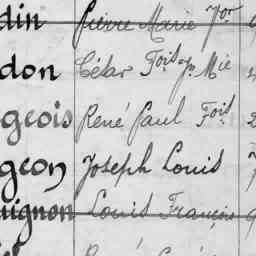 din Pierre Marie Jor
don César Fois Jh Mie
geois René Paul Fois
geon Joseph Louis
uignon Louis François